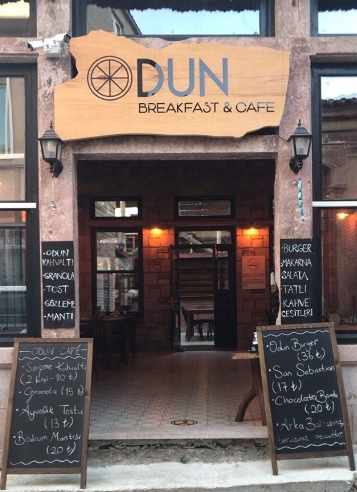 ODUN
BREAKFAST & CAFE
·ODUN
KAHVALTI
·GRANOLA
·TOST
·GÖZLEME
·MANTI
·BURGER
·MAKARNA
·SALATA
·TATLI
·KAHVE
ÇEŞİTLERİ
ODUN CAFE
·Serpme Kahvaltı
(2 kişi - 80 ₺)
·Granola (15 ₺)
·Ayvalık Tostu
(13 ₺)
·Badem Mantısı
(20 ₺)
·Odun Burger
(36 ₺)
·San Sebastian
(17 ₺)
·Chocolate Bomb
(20 ₺)
·Arka
terasımız mevcuttur